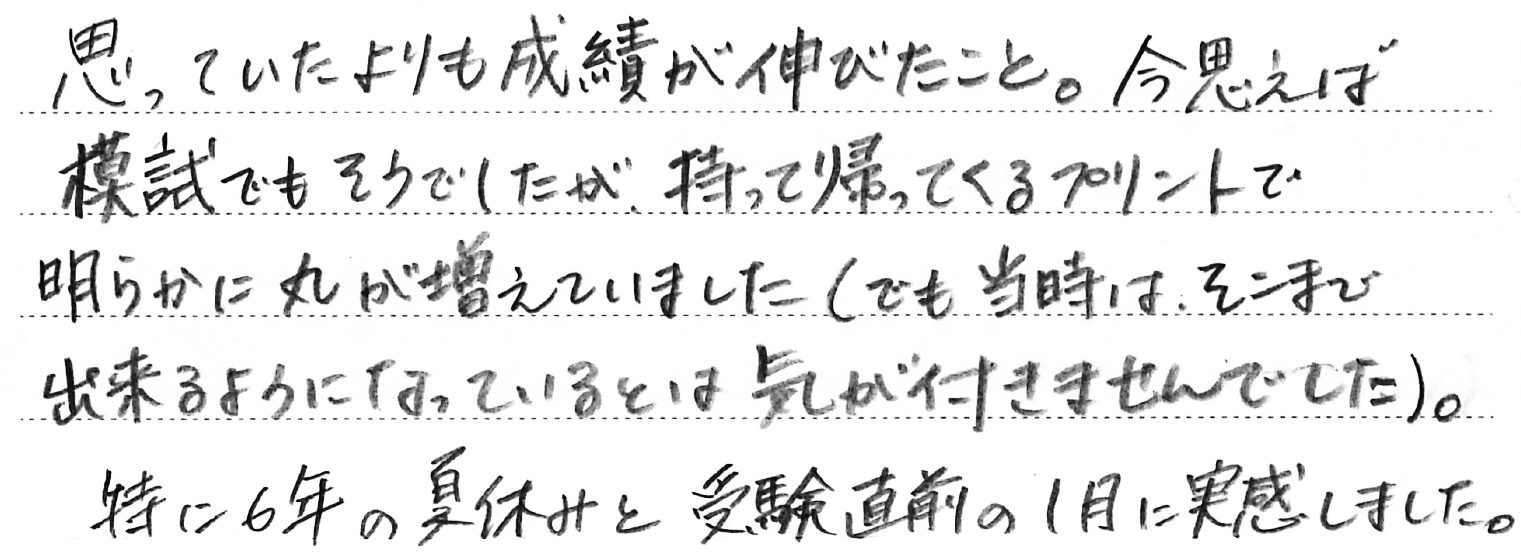 思っていたよりも成績が伸びたこと。今思えば
模試でもそうでしたが、持って帰ってくるプリントで
明らかに丸が増えていました(でも当時は、そこまで
出来るようになっているとは気が付きませんでした)。
特に6年の夏休みと受験直前の1月に実感しました。